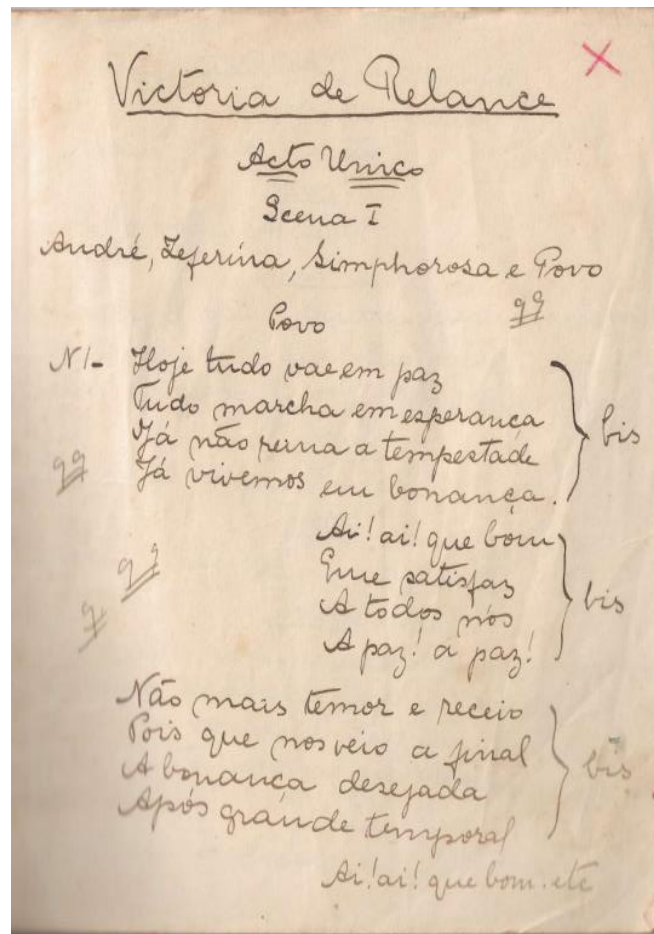 Victoria de Relance
Acto Unico
Scena I
André, Zeferina, Simphorosa e Povo
Povo
N1- Hoje tudo vae em paz
Tudo marcha em esperança
Já não reina a tempestade
Já vivemos em bonança. bis
Ai! ai! que bom
E me satisfaz
A todos nós
A paz! a paz! bis
Não mais temor e receio
Pois que nos veio a final
A bonança desejada
Após grande temporal bis
Ai! ai! que bom. etc